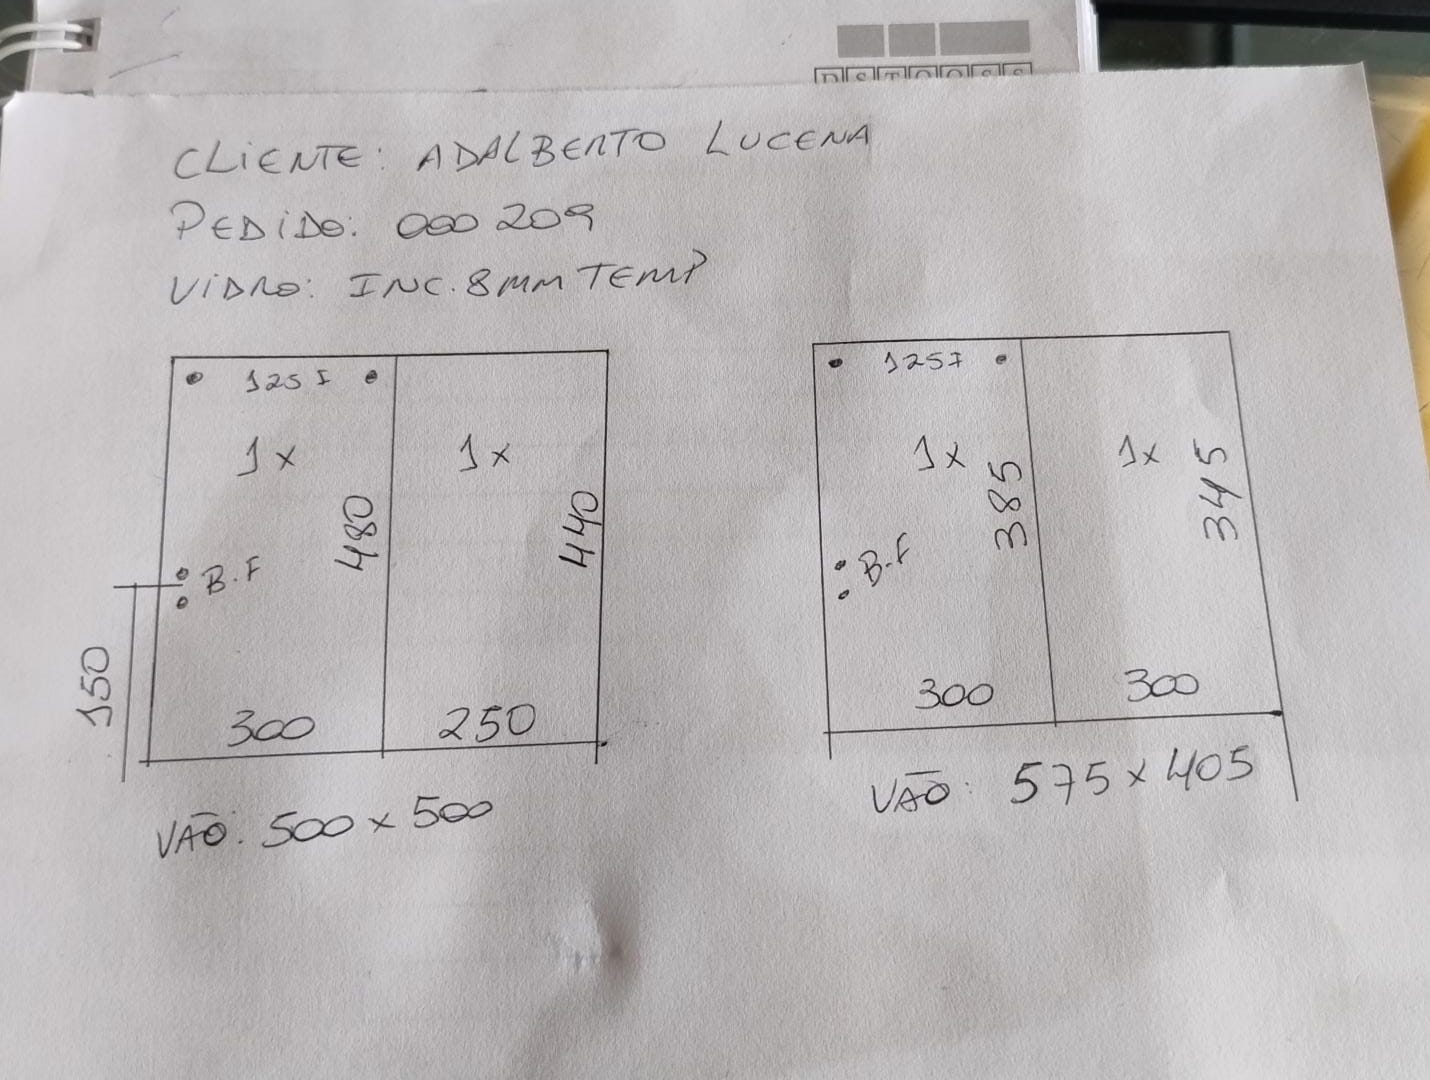 CLIENTE: ADALBERTO LUCENA
PEDIDO: 000209
VIDRO: INC. 8MM TEMP
125I
1x
1x
480
440
B.F
150
300
250
VÃO: 500 x 500
125I
1x
1x
385
345
B.F
300
300
VÃO: 575 x 405